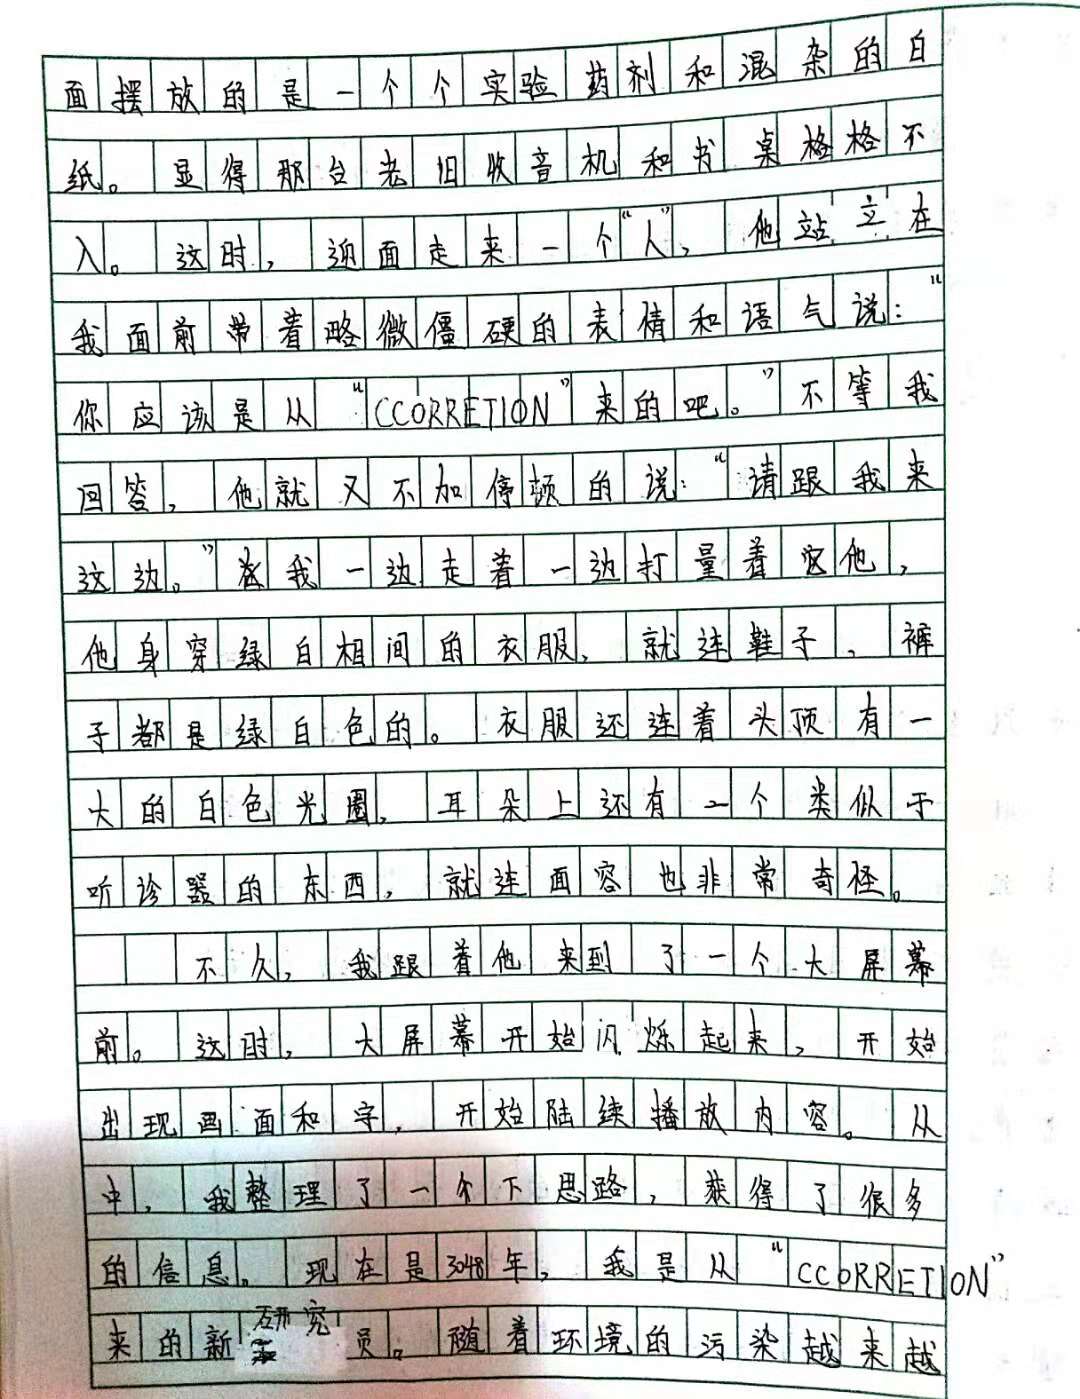 面摆放的是一个个实验药剂和混杂的白
纸。显得那台老旧收音机和书桌格格不
入。这时，迎面走来一个“人”，他站立在
我面前带着略微僵硬的表情和语气说：“
你应该是从“CCORRETION”来的吧。”不等我
回答，他就又不加停顿的说：“请跟我来
这边。”我一边走着一边打量着他，
他身穿绿白相间的衣服，就连鞋子，裤
子都是绿白色的。衣服还连着头顶有一
大的白色光圈，耳朵上还有一个类似于
听诊器的东西，就连面容也非常奇怪。
不久，我跟着他来到了一个大屏幕
前。这时，大屏幕开始闪烁起来，开始
出现画面和字，开始陆续播放内容。从
中，我整理了一下思路，获得了很多
的信息。现在是3048年，我是从“CCORRETION”
来的新研究员。随着环境的污染越来越